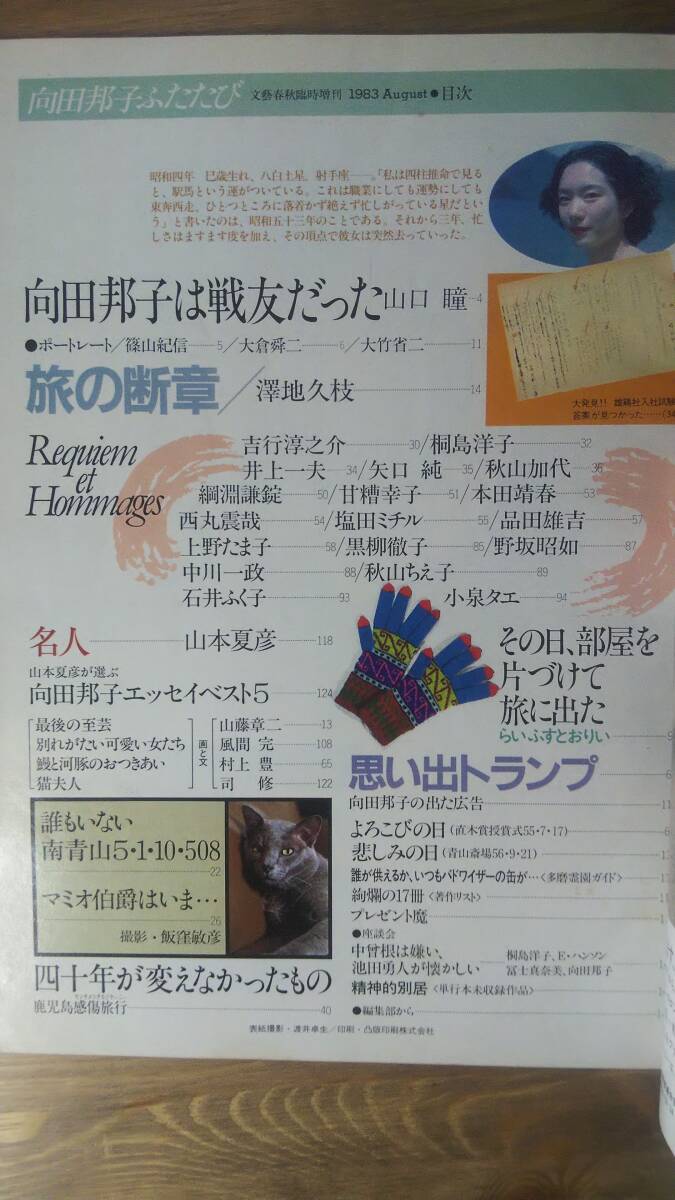 向田邦子ふたたび 文藝春秋臨時増刊 1983 August●目次
昭和四年 巳歳生れ、八白土星。射手座――。「私は四柱推命で見る
と、駅馬という運がついている。これは職業にしても運勢にしても
東奔西走、ひとつところに落着かず絶えず忙しがっている星だとい
う」と書いたのは、昭和五十三年のことである。それから三年、忙
しさはますます度を加え、その頂点で彼女は突然去っていった。
向田邦子は戦友だった 山口 瞳 4
●ポートレート/篠山紀信 5/大倉舜二 6/大竹省二 11
旅の断章/澤地久枝 14
大発見!! 雄鶏社入社試験
答案が見つかった……(34
Requiem
et
Hommages
吉行淳之介 30/桐島洋子 32
井上一夫 34/矢口 純 35/秋山加代 36
綱淵謙錠 50/甘糟幸子 51/本田靖春 53
西丸震哉 54/塩田ミチル 55/品田雄吉 57
上野たま子 58/黒柳徹子 85/野坂昭如 87
中川一政 88/秋山ちえ子 89
石井ふく子 93 小泉タエ 94
名人 山本夏彦 118
山本夏彦が選ぶ
向田邦子エッセイベスト5 124
最後の至芸 山藤章二 13
別れがたい可愛い女たち 風間 完 108
鰻と河豚のおつきあい 村上 豊 65
猫夫人 司 修 122
画と文
誰もいない
南青山5・1・10・508
22
マミオ伯爵はいま…
26
撮影・飯窪敏彦
四十年が変えなかったもの
鹿児島感傷旅行 40
センチメンタルジャーニー
その日、部屋を
片づけて
旅に出た
らいふすとおりい 9
思い出トランプ 6
向田邦子の出た広告 11
よろこびの日(直木賞授賞式55・7・17) 6
悲しみの日(青山斎場56・9・21)
誰が供えるか、いつもバドワイザーの缶が…<多磨霊園ガイド>
絢爛の17冊<著作リスト>
プレゼント魔
●座談会
中曾根は嫌い、
池田勇人が懐かしい
桐島洋子、E・ハンソン
冨士真奈美、向田邦子
精神的別居<単行本未収録作品>
●編集部から
表紙撮影・渡井卓生/印刷・凸版印刷株式会社